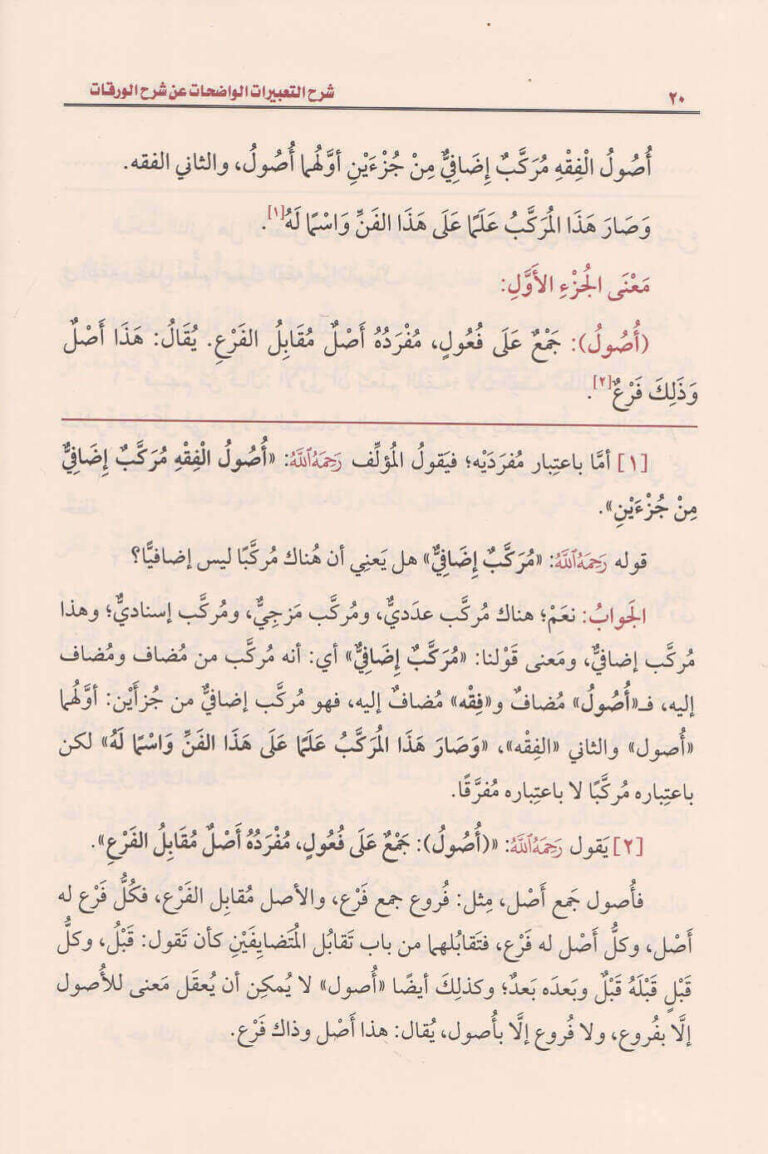 ٢٠ شرح التعبيرات الواضحات عن شرح الورقات
أُصُولُ الْفِقْهِ مُرَكَّبٌ إِضَافِيٌّ مِنْ جُزْءَيْنِ أوَّلُهُما أُصُولُ، والثاني الفقه.
وَصَارَ هَذَا المُرَكَّبُ عَلَمًا عَلَى هَذَا الفَنِّ وَاسْمًا لَهُ[١].
مَعْنَى الجُزْءِ الأَوَّلِ:
(أُصُولُ): جَمْعٌ عَلَى فُعُولٍ، مُفْرَدُهُ أَصْلٌ مُقَابِلُ الفَرْعِ. يُقَالُ: هَذَا أَصْلٌ
وَذَلِكَ فَرْعٌ[٢].
[١] أمَّا باعتِبار مُفرَدَيْه؛ فيَقولُ المُؤلِّف رَحِمَهُ اللَّهُ: «أُصُولُ الْفِقْهِ مُرَكَّبٌ إِضَافِيٌّ
مِنْ جُزْءَيْنِ».
قوله رَحِمَهُ اللَّهُ: «مُرَكَّبٌ إِضَافِيٌّ» هل يَعنِي أن هُناك مُركَّبًا ليس إضافيًّا؟
الجَوابُ: نعَمْ؛ هناك مُركَّب عدَديٌّ، ومُركَّب مَزجِيٌّ، ومُركَّب إسناديٌّ؛ وهذا
مُركَّب إضافيٌّ، ومَعنى قَوْلنا: «مُرَكَّبٌ إِضَافِيٌّ» أي: أنه مُركَّب من مُضاف ومُضاف
إليه، فـ«أُصُولُ» مُضافٌ و«فِقْه» مُضافٌ إليه، فهو مُركَّب إضافيٌّ من جُزأَيْن: أوَّلُهُما
«أُصول» والثاني «الفِقْه»، «وَصَارَ هَذَا المُرَكَّبُ عَلَمًا عَلَى هَذَا الفَنِّ وَاسْمًا لَهُ» لكن
باعتِباره مُركَّبًا لا باعتِباره مُفرَّقًا.
[٢] يَقول رَحِمَهُ اللَّهُ: «(أُصُولُ): جَمْعٌ عَلَى فُعُولٍ، مُفْرَدُهُ أَصْلٌ مُقَابِلُ الفَرْعِ».
فأُصول جَمع أَصْل، مِثل: فُروع جمع فَرْع، والأصل مُقابِل الفَرْع، فكُلُّ فَرْع له
أَصْل، وكلُّ أَصْل له فَرْع، فتَقابُلهما من باب تَقابُل المُتَضايِفَيْنِ كأن تَقول: قَبْلُ، وكلُّ
قَبْلٍ قَبْلَهُ قَبْلٌ وبَعدَه بَعدٌ؛ وكذلِكَ أيضًا «أُصول» لا يُمكِن أن يُعقَل مَعنى للأُصول
إلَّا بفُروع، ولا فُروع إلَّا بأُصول، يُقال: هذا أَصْل وذاك فَرْع.